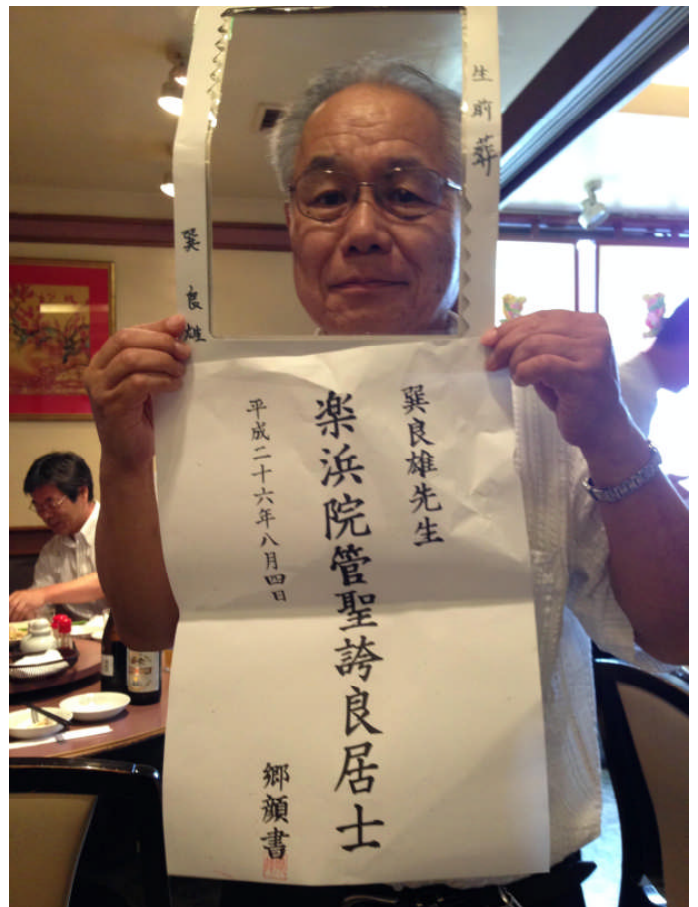 生前葬
巽良雄
巽良雄先生
楽浜院管聖誇良居士
平成二十六年八月四日
郷顔書